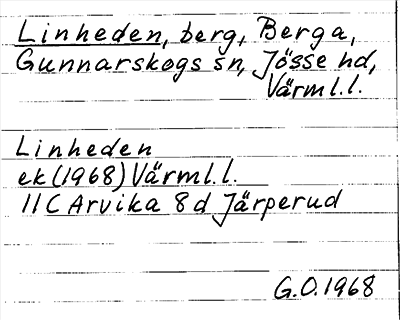 Linheden, berg, Berga,
Gunnarskogs sn, Jösse hd,
Värml.l.
Linheden
ek (1968) Värml.l.
11 C Arvika 8 d Järperud
G.O. 1968